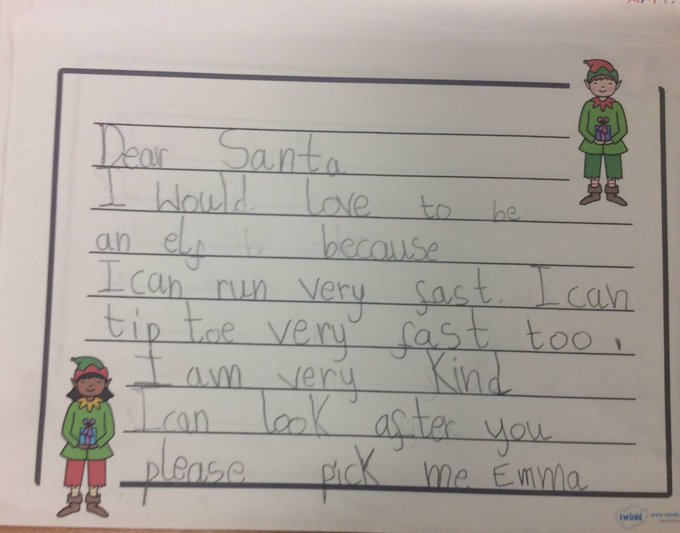 Dear Santa
I would love to be
an elf because
I can run very fast. I can
tip toe very fast too.
I am very kind
I can look after you
please pick me Emma
twinkl